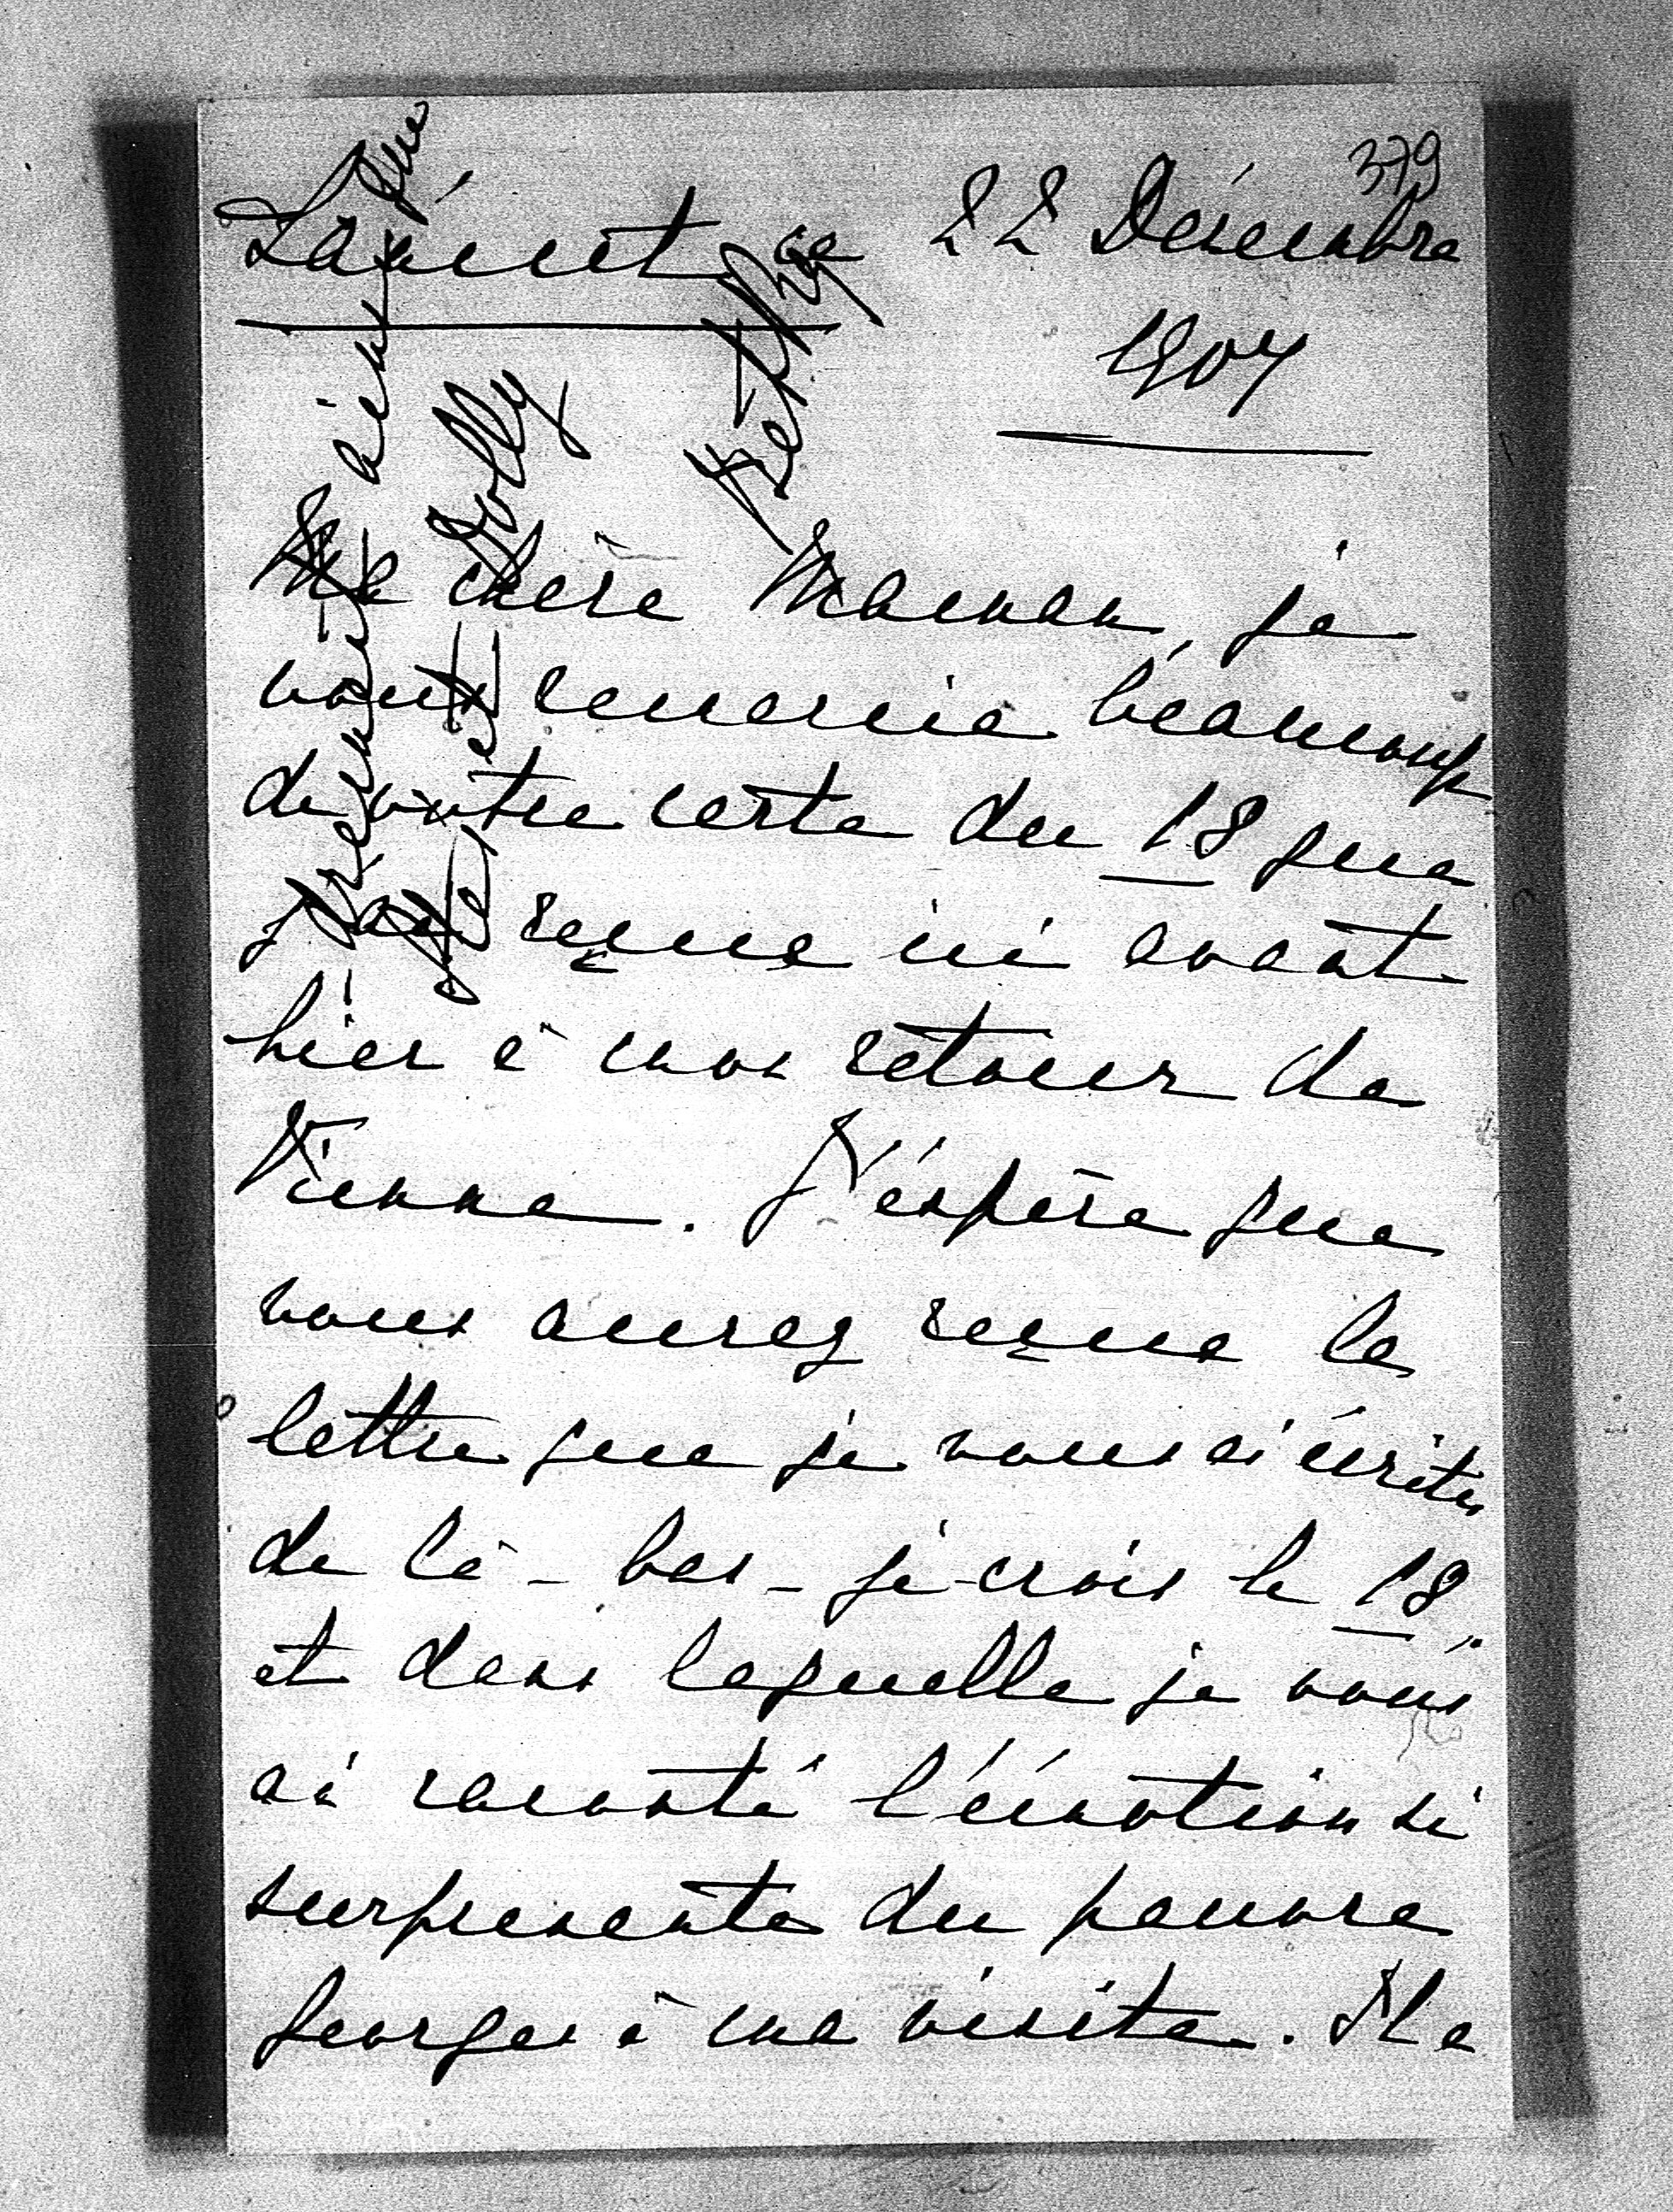 379
Lancut ce 22 Décembre
1907
Ma chère Maman, je
vous remercie beaucoup
de votre carte du 18 que
j'ai reçue ici avant
hier à mon retour de
Vienne. J'éspère que
vous aurez reçue la
lettre que je vous ai écrite
de là-bas - je crois le 18.
et dans laquelle je vous
ai raconté l'émotion si
surprenante du pauvre
Georges à ma visite. Il a